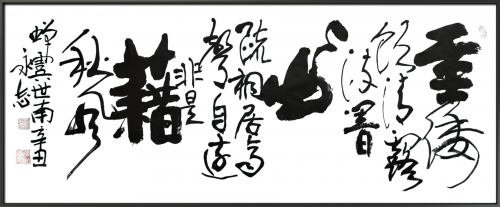 垂緌
飲清露
流響
出
疏桐居高
聲自遠
非是
藉
秋風
蟬虞世南辛丑
永志